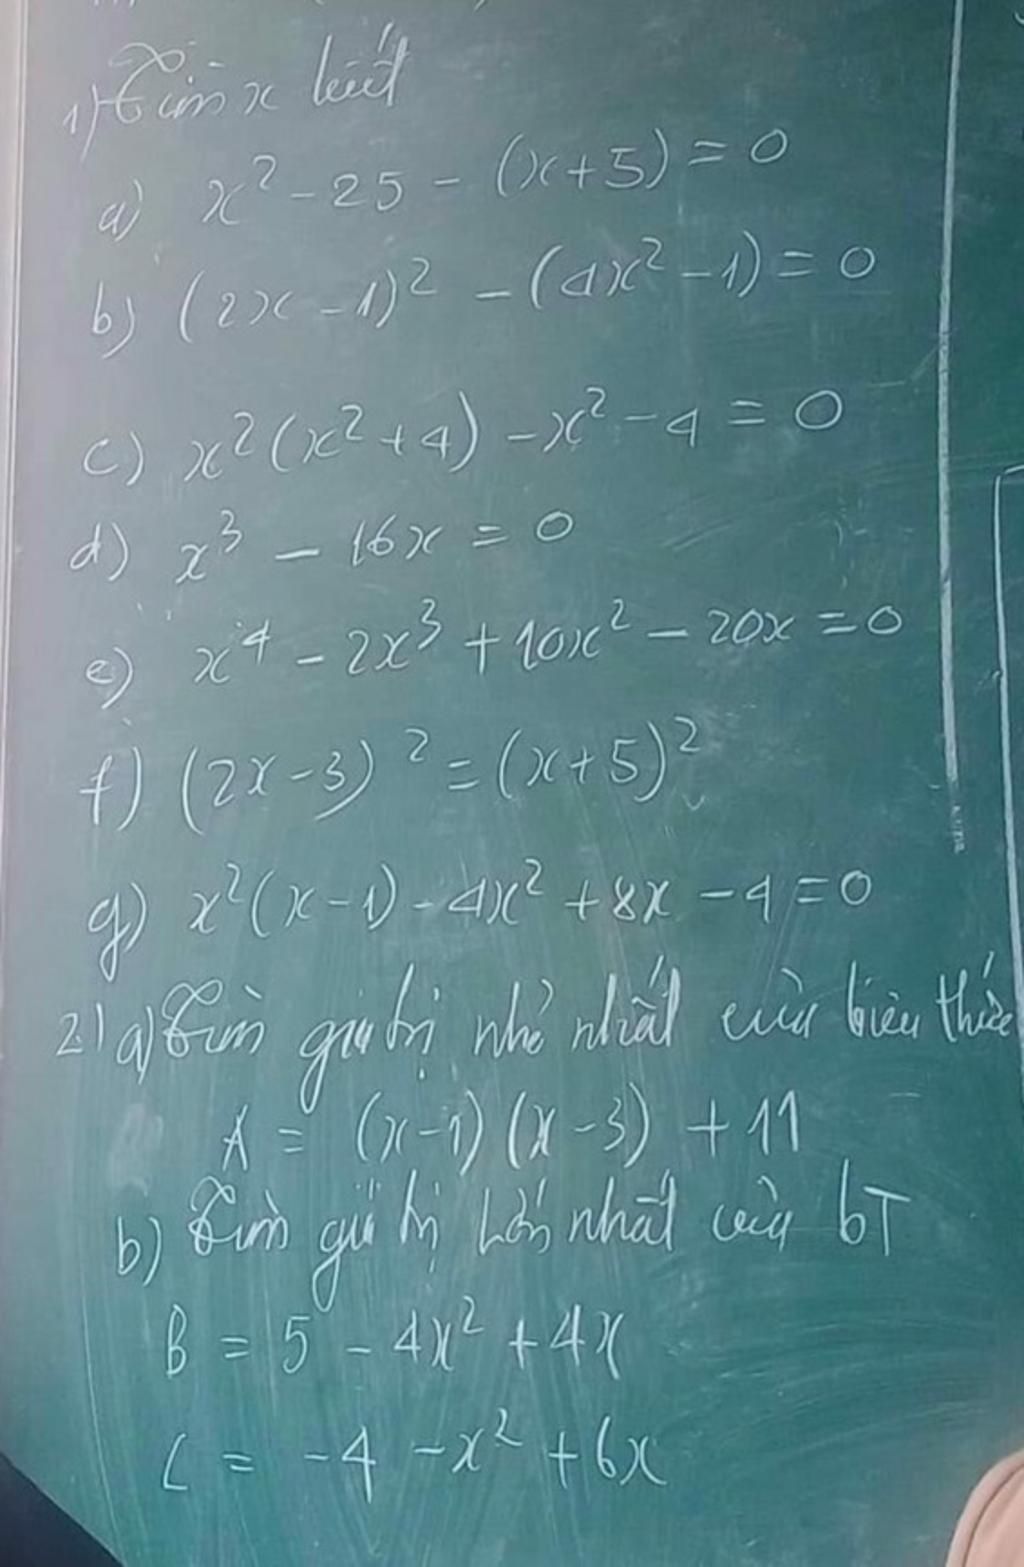 1) Tìm x biết
a) x² - 25 - (x+5) = 0
b) (2x - 1)² - (4x² - 1) = 0
c) x²(x² + 4) - x² - 4 = 0
d) x³ - 16x = 0
e) x⁴ - 2x³ + 10x² - 20x = 0
f) (2x - 3)² = (x+5)²
g) x²(x-1) - 4x² + 8x - 4 = 0
2) a) Tìm giá trị nhỏ nhất của biểu thức
A = (x-1)(x-3) + 11
b) Tìm giá trị lớn nhất của bT
B = 5 - 4x² + 4x
C = -4 - x² + 6x